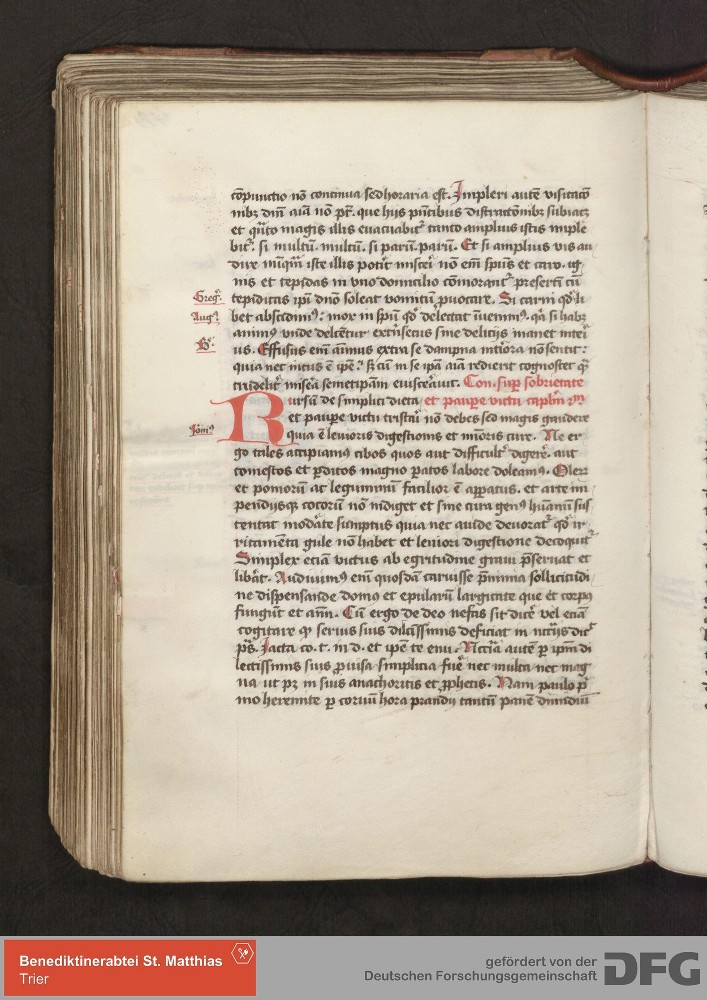 cōpunctio nō continua sed horaria est. Impleri autē visitacō
nibꝫ diuī aīa nō pt̄. que hijs p̄ntibus distractōnibꝫ subiacꝫ
et q̄nto magis illis euacuabit᷑ tanto amplius istis imple
bit᷑. si multū. multū. si parū. parū. Et si amplius vis au
dire nūq̄ꝫ iste illis potȳt misceri nō em̄ spūs et caro. ig
nis et tepidas in vno domicilio cōmorant᷑ presertī cū
Greg᷑. tepiditas ip̄i dn̄o soleat vomitū ꝓuocare. Si carni qd̓ li
Aug᷑. bet abscidimꝰ: mox in spūi qd̓ delectat īuenimꝰ. qͣ si habꝫ
animꝰ vnde delectetur extrīsecus sine delicijs manet inter᷑
B᷑. us. Effusus em̄ animus extra se dampna interiora nō sentit:
quia nec intus ē ip̄e: sꝫ cū in se ip̄ā aīa redierit cognoscet qͣꝫ
crudelit᷑ miseā semetip̄am euiscerauit. Con. sup̱ sobrietate
Rursū de simplici dieta et paup̱e victu caplm̄ 2m
et paup̱e victu tristari nō debes sed magis gaudere
Ieronīꝰ quia ē leuioris digestionis et minoris cure. Ne er
go tales accipiamꝰ cibos quos aut difficult᷑ digere᷑. aut
comestos et ꝑditos magno ꝑatos labore doleamꝰ. Olerꝫ
et pomorū ac leguminū facilior ē apꝑatus. et arte im
pendijsqꝫ cocorū nō indiget et sine cura genꝰ huanū sus
tentat moderate sumptus quia nec auide deuorat᷑ qd̓ ir
ritamēta gule nō habet et leniori digestione decoquit᷑
Simplex eciā victus ab egritudine graui p̄seruat et
liberat. Audiuimꝰ em̄ quosdā caruisse p̄nimia sollicitudi
ne dispensande domꝰ et epularū largitate que et corpꝰ
frangunt et aīm. Cū ergo de deo nefas sit dice᷑ vel eciā
cogitare qꝫ seruis suis dilc̄issimis deficiat in nccījs dic᷑
p̄s. Iacta co. t. in d. et ip̄e te enu. Nccīa autē ꝑ ip̄m di
lectissimis suis ꝓuisa simplicia fue᷑ nec multa nec mag
na. ut pꝫ in suis anachoritis et ꝓphetis. Nam paulo p̄
mo heremite ꝑ coruū hora prandij tantū panē dimidiū
Benediktinerabtei St. Matthias
Trier
gefördert von der
Deutschen Forschungsgemeinschaft
DFG